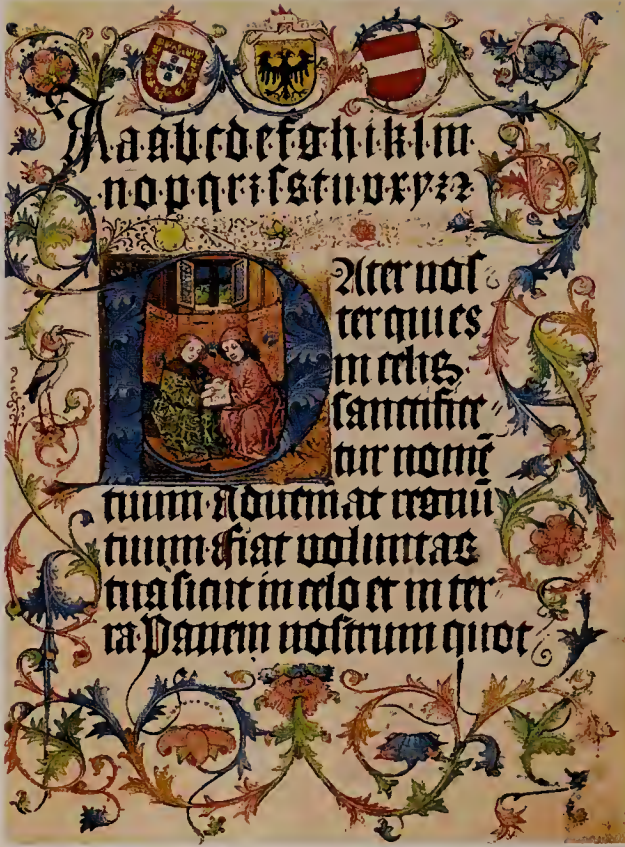 A·a·a·b·c·d·e·f·g·h·i·k·l·m
n·o·p·q·r·ꝛ·ſ·s·t·u·v·x·y·z·ꝛ
PAter noſ
ter qui es
in celis
sanctifice
tur nomē
tuum·Adveniat regnū
tuum·fiat voluntas
tua sicut in celo et in ter
ra·Panem noſtrum quot